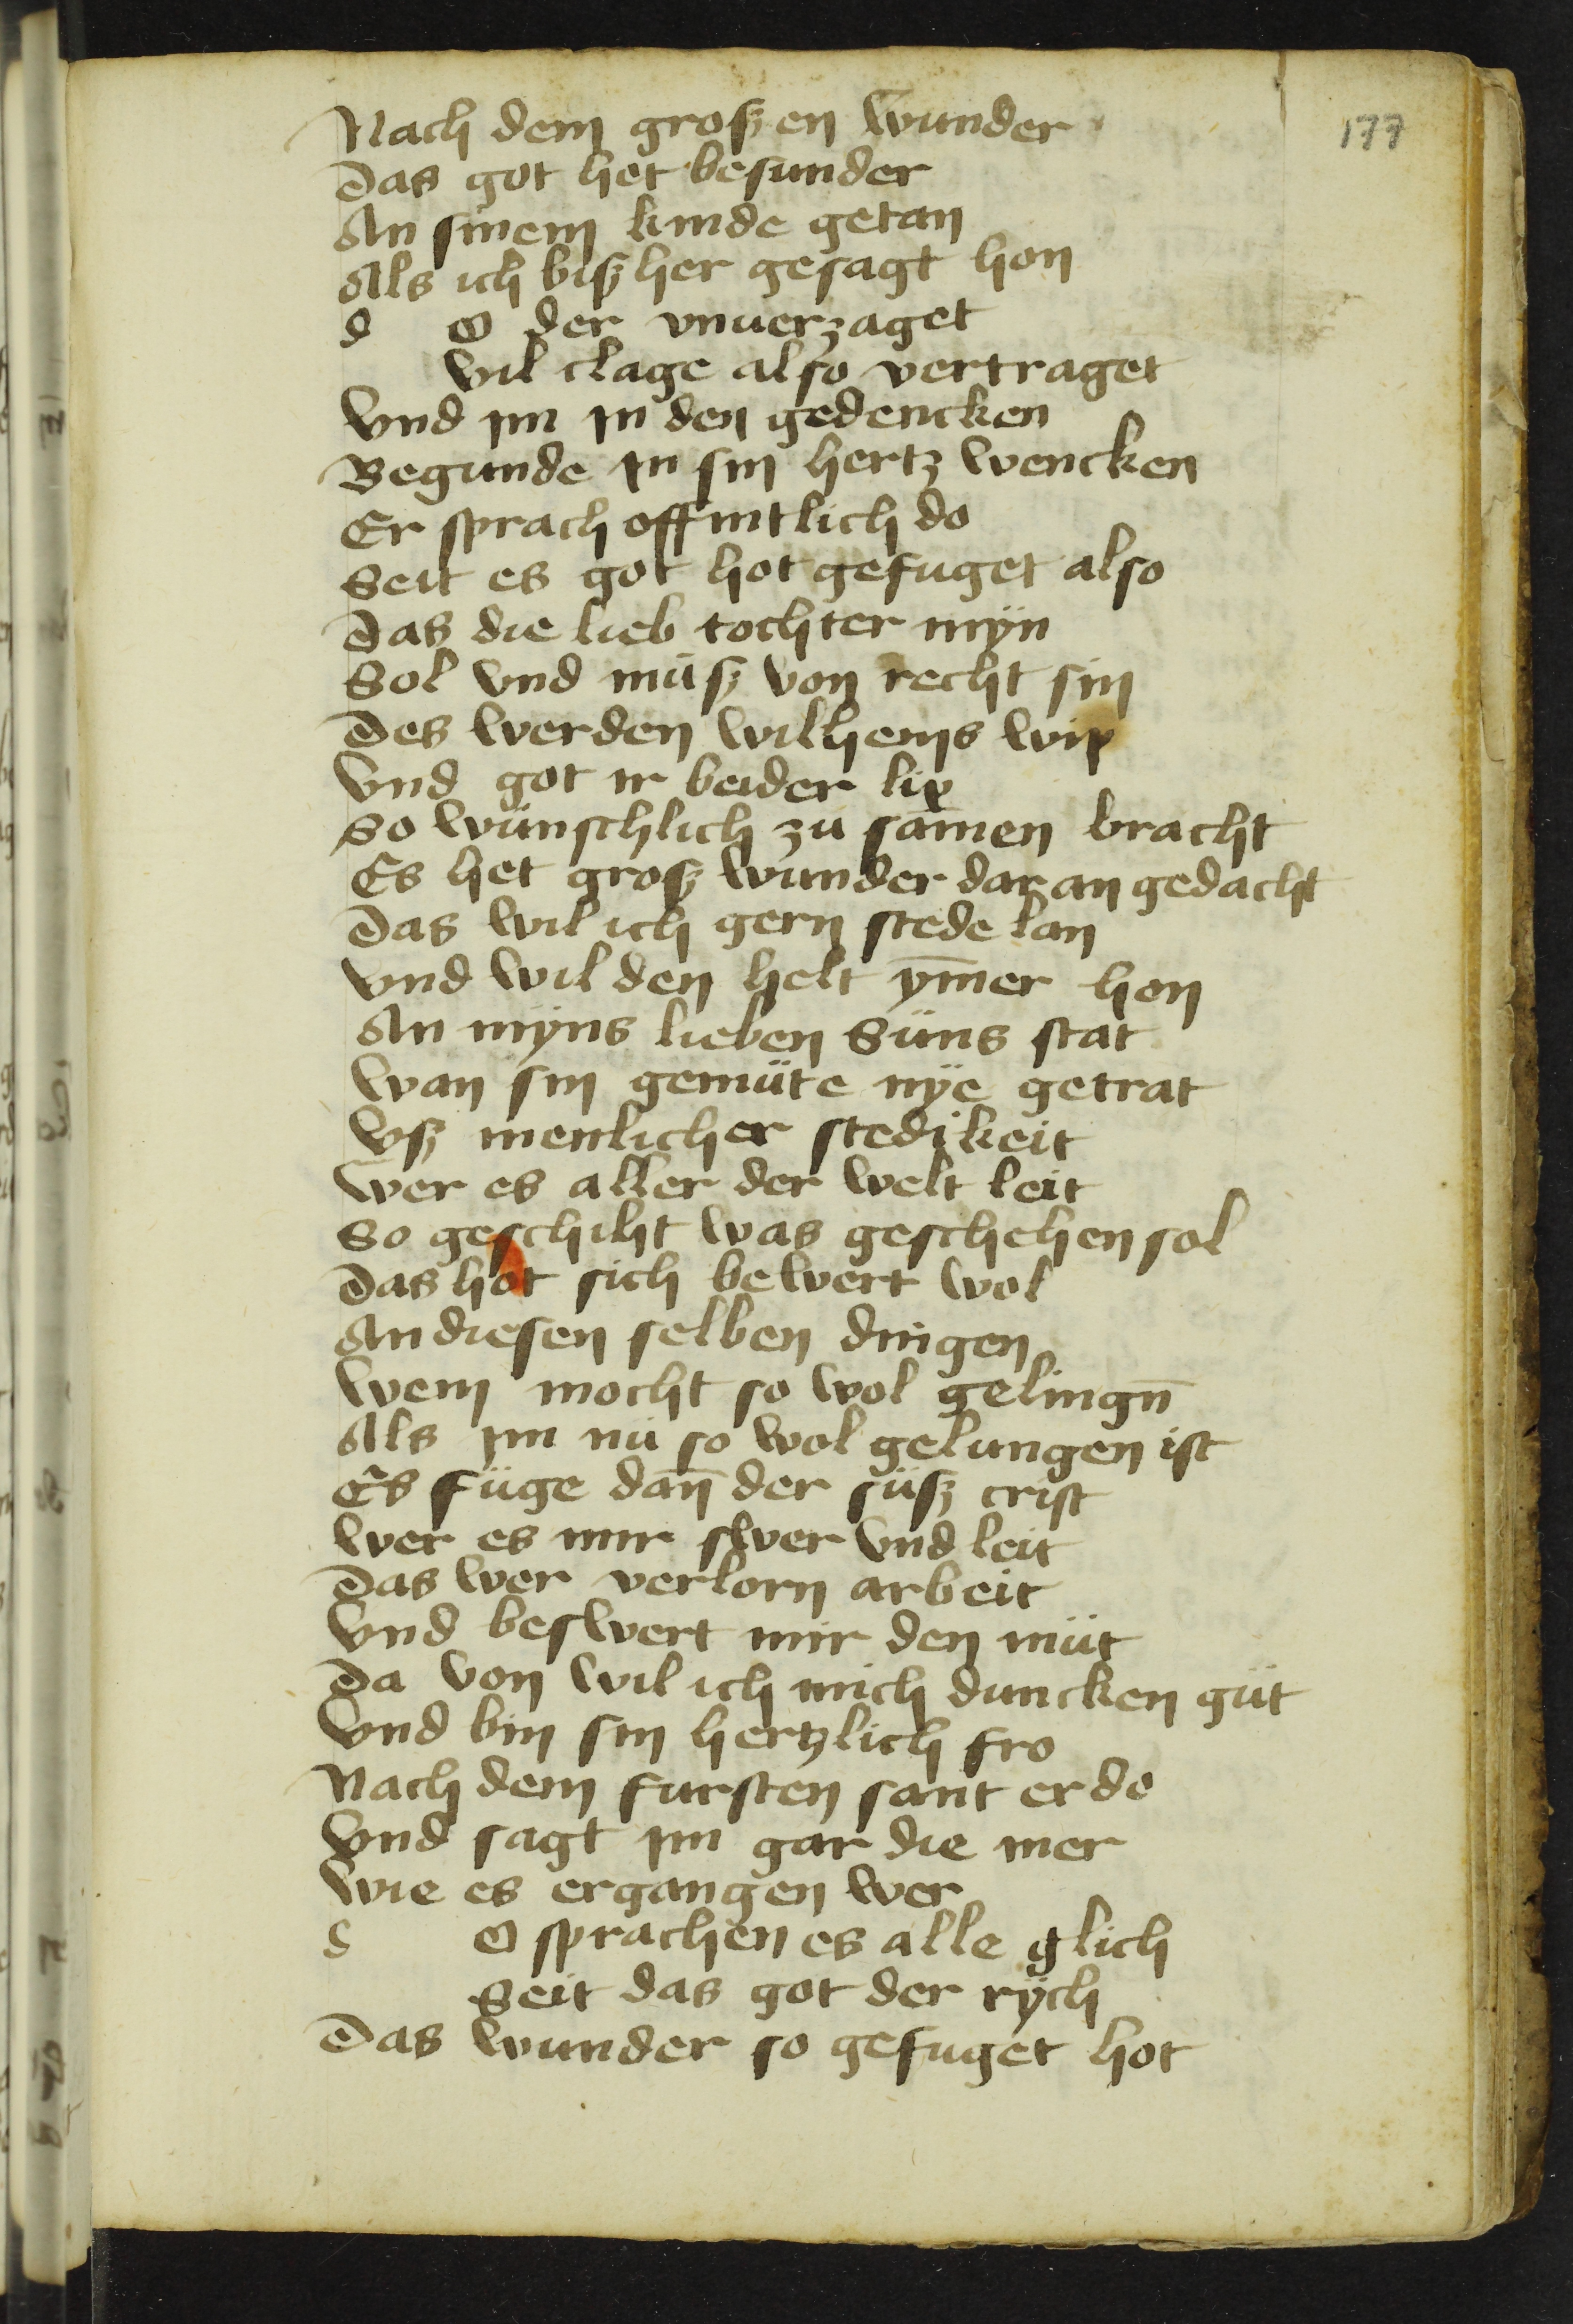 177
Nach dem groszen wunder
Das got het besunder
An sinem kinde getan
Als ich biszher gesagt hon
d O der vnuerzaget
Vil clage also vertraget
Vnd im in den gedencken
Begunde in sin hertz wencken
Er sprach offintlich do
Seit es got hot gefuget also
Das die lieb tochter myn
Sol vnd müsz von recht sin
Des werden wilhems wip
Vnd got ir beider lip
So wünschlich zu samen bracht
Es het grosz wunder dar an gedacht
Das wil ich gern stede lan
Vnd wil den helt ym̄er hon
An myns lieben Süns stat
Wan sin gemüte nye getrat
Vsz menlicher stedikeit
Wer es aller der welt leit
So geschiht was geschehen sol
Das hot sich bewert wol
An diesen selben dingen
Wem mocht so wol gelingn̄
Als im nü so wol gelungen ist
Es füge dan̄ der süsz crist
Wer es mir swer vnd leit
Das wer verlorn arbeit
Vnd beswert mir den müt
Da von wil ich mich duncken güt
Vnd bin sin hertzlich fro
Nach dem fursten sant er do
Vnd sagt im gar die mer
Wie es ergangen wer
s O sprachen es alle glich
Seit das got der rych
Das wunder so gefuget hot